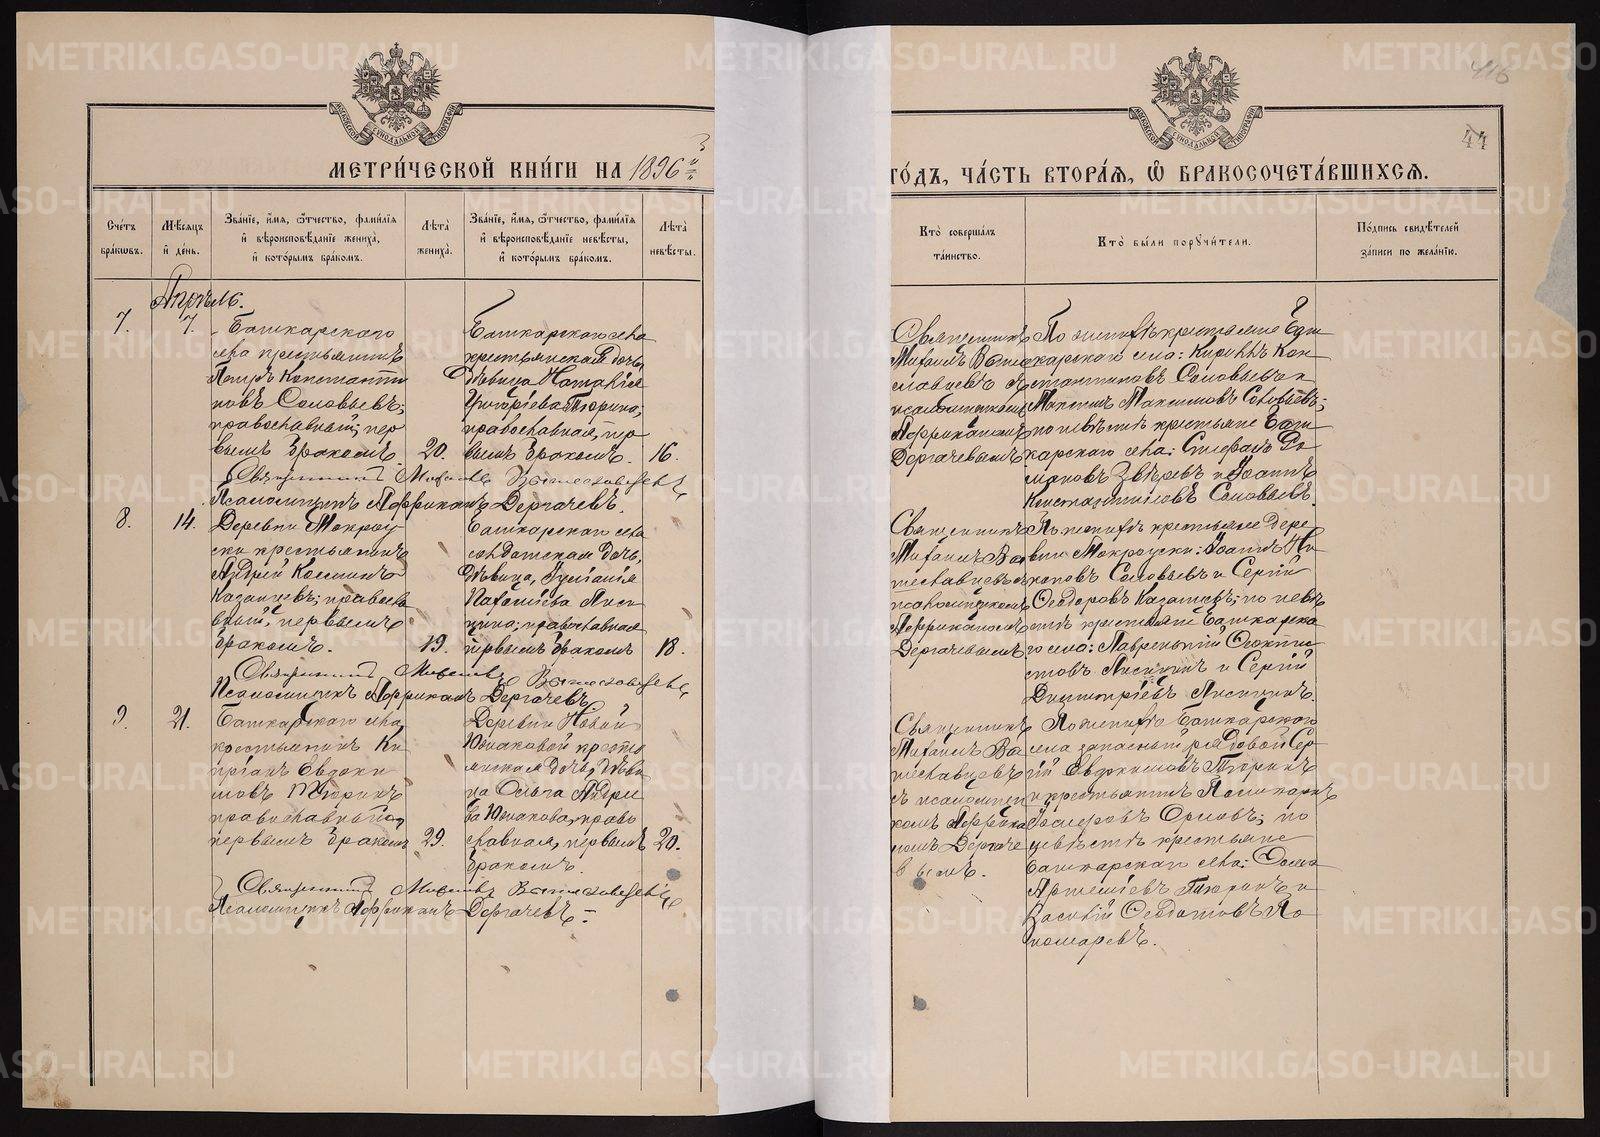 МЕТРИ́ЧЕСКОЙ КНИ́ГИ НА 1896й
Сче́тъ бра́кѡвъ.
Мѣ́сяцъ и҆ де́нь.
Зва́нїе, и҆́мя, ѻ҆́тчество, фами́лїя и҆ вѣроисповѣ́данїе жениха̀, и҆ кото́рымъ бра́комъ.
Лѣ́та жениха̀.
Зва́нїе, и҆́мя, ѻ҆́тчество, фами́лїя и҆ вѣроисповѣ́данїе невѣ́сты, и҆ кото́рымъ бра́комъ.
Лѣ́та невѣ́сты.
Апрѣль.
7.
7.
Башкарскаго
села крестьянинъ
Петръ Константи
новъ Соловьевъ;
православный; пер
вымъ бракомъ.
20.
Башкарскаго села
крестьянская дочь,
дѣвица Наталія
Григоріева Тюрина;
православная, пер
вымъ бракомъ.
16.
Священникъ Михаилъ
Псаломщикъ Африканъ Дергачевъ.
8.
14.
Деревни Мокроус
ки крестьянинъ
Андрей Косминъ
Казанцевъ; правосла
вный, первымъ
бракомъ.
19.
Башкарскаго села
солдатская дочь,
дѣвица,
Лиси
цина; православная
первымъ бракомъ
18.
Священникъ Михаилъ
Псаломщикъ Африканъ Дергачевъ.
9.
21.
Башкарскаго села
крестьянинъ Ки
пріанъ Евдоки
мовъ Тюринъ
православный,
первымъ бракомъ
29.
Деревни Новой
Юшаковой кресть
янская дочь, дѣви
ца Ольга Андрее
ва Юшакова, право
славная, первымъ
бракомъ.
20.
Священникъ Михаилъ
Псаломщикъ Африканъ Дергачевъ.
416
44
ГО́ДЪ, ЧА́СТЬ ВТОРА́Я, Ѽ БРАКОСОЧЕТА́ВШИХСЯ.
Кто̀ соверша́лъ та́инство.
Кто̀ бы́ли порꙋчи́тели.
По́дпись свидѣ́телей за́писи по жела́нїю.
Священникъ
Михаилъ
славцевъ
псаломщикомъ
Африканомъ
Дергачевымъ
По женихѣ крестьяне Баш
карскаго села: Кириллъ Кон
стантиновъ Соловьевъ и
Максимъ Максимовъ Соловьевъ;
по невѣстѣ крестьяне Баш
карскаго села: Стефанъ Ро
мановъ Звѣревъ и Іоаннъ
Константиновъ Соловьевъ.
Священникъ
Михаилъ
псаломщикомъ
Африканомъ
Дергачевымъ
По женихѣ крестьяне дере
вни Мокроуски: Іоаннъ Ни
кановъ Соловьевъ и Сергій
Ѳеодоровъ Казанцевъ; по невѣ
стѣ крестьяне Башкарска
го села: Лаврентій Ѳеокти
стовъ Лисицинъ и Сергій
Димитріевъ Лисицинъ.
Священникъ
Михаилъ
съ псаломщи
комъ Африка
номъ Дергаче
вымъ.
По женихѣ Башкарскаго
села запасный рядовой Сер
гій Евдокимовъ Тюринъ
и крестьянинъ
Орловъ; по
невѣстѣ крестьяне
Башкарскаго села:
Артеміевъ Тюринъ и
Василій Ѳеодотовъ По
номаревъ.
METRIKI.GASO-URAL.RU